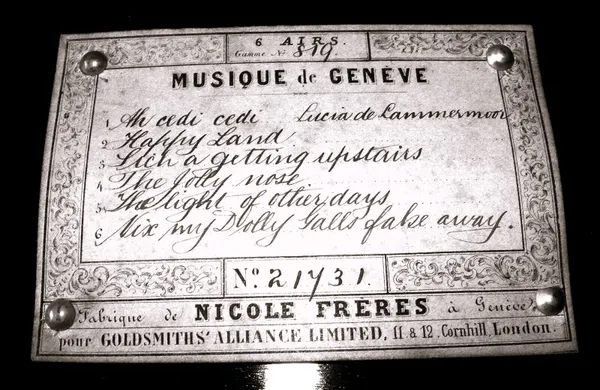 6 AIRS.
Gamme No 819
MUSIQUE de GENÈVE
1 Ah cedi cedi Lucia de Lammermoor
2 Happy Land
3 Sich a getting upstairs
4 The Jolly nose
5 The light of other days
6 Nix my Dolly Galls fake away.
No. 21731.
Fabrique de NICOLE FRÈRES à Genève
pour GOLDSMITHS' ALLIANCE LIMITED, 11 & 12, Cornhill, London.